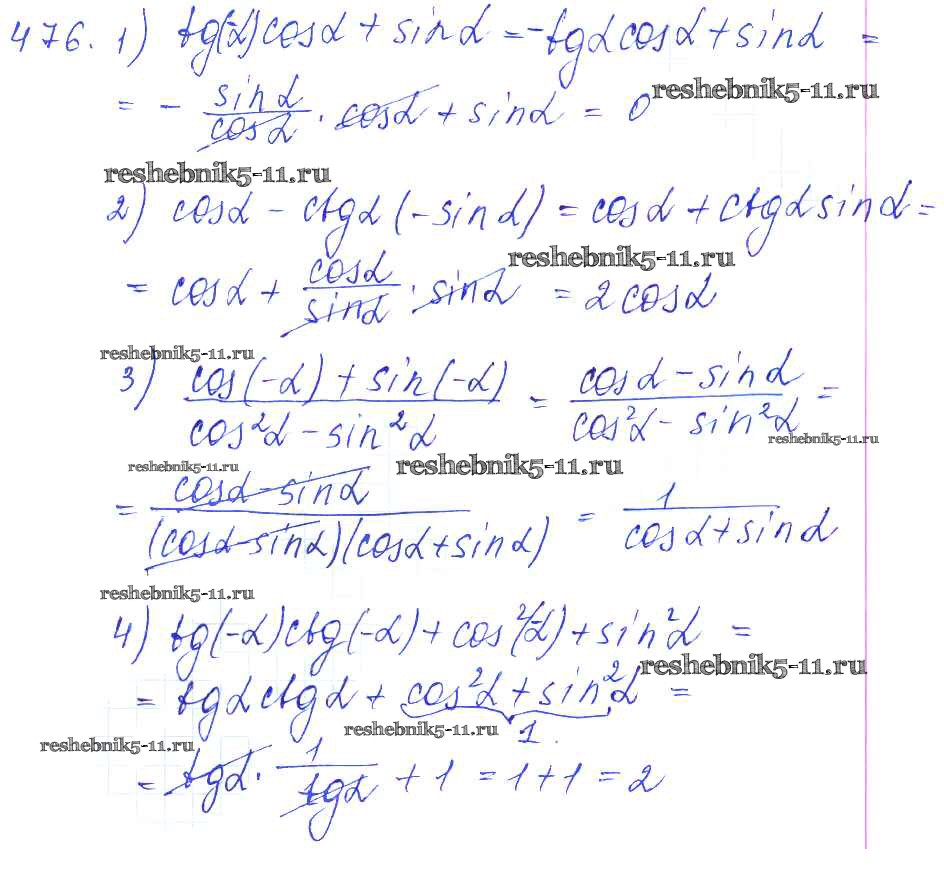 476. 1) tg(-α)cosα + sinα = -tgα cosα + sinα =
= - sinα/cosα · cosα + sinα = 0 reshebnik5-11.ru
reshebnik5-11.ru
2) cosα - ctgα(-sinα) = cosα + ctgα sinα =
reshebnik5-11.ru
= cosα + cosα/sinα · sinα = 2cosα
reshebnik5-11.ru
3) (cos(-α) + sin(-α))/(cos²α - sin²α) = (cosα - sinα)/(cos²α - sin²α) =
reshebnik5-11.ru
reshebnik5-11.ru reshebnik5-11.ru
= (cosα - sinα)/((cosα - sinα)(cosα + sinα)) = 1/(cosα + sinα)
reshebnik5-11.ru
4) tg(-α)ctg(-α) + cos²(-α) + sin²α =
reshebnik5-11.ru
= tgα ctgα + cos²α + sin²α =
reshebnik5-11.ru 1.
reshebnik5-11.ru
= tgα · 1/tgα + 1 = 1 + 1 = 2